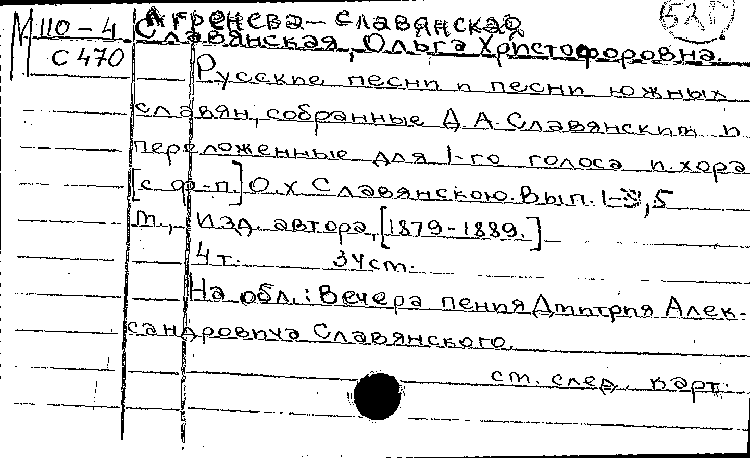 М 110-4 Агренева-Славянская 52г
С 470 Славянская, Ольга Христофоровна.
Русские песни и песни южных
славян, собранные Д.А. Славянским и
переложенные для 1-го голоса и хора
[с ф-п.] О.Х Славянскою. Вып. 1-3, 5
М., изд. автора, [1879-1889.]
4 т. 34 см.
На обл.: Вечера пения Дмитрия Алек-
сандровича Славянского.
см. след. карт.